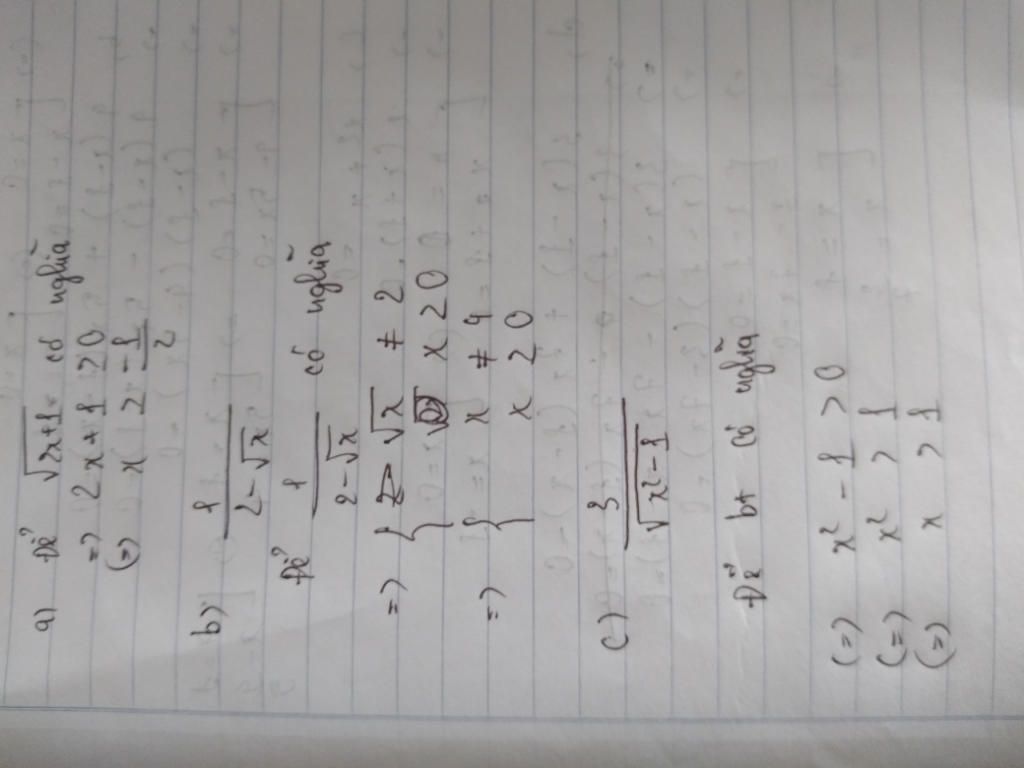 a) Để √2x+1 có nghĩa
=> 2x+1 ≥0
(=) x ≥ -1/2
b) 1/2-√x
Để 1/2-√x có nghĩa
=> { √x ≠ 2
x ≥0
=> { x ≠ 4
x ≥0
c) 3/√x²-1
Để bt có nghĩa
(=) x² - 1 >0
(=) x² > 1
(=) x > 1